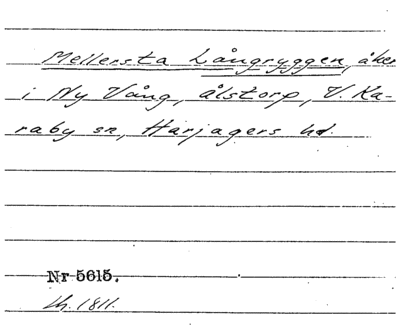 Mellersta Långryggen, åker
i Ny Vång, Ålstorp, V. Ka-
raby sn, Harjagers hd.
Nr 5615.
Lh. 1811.